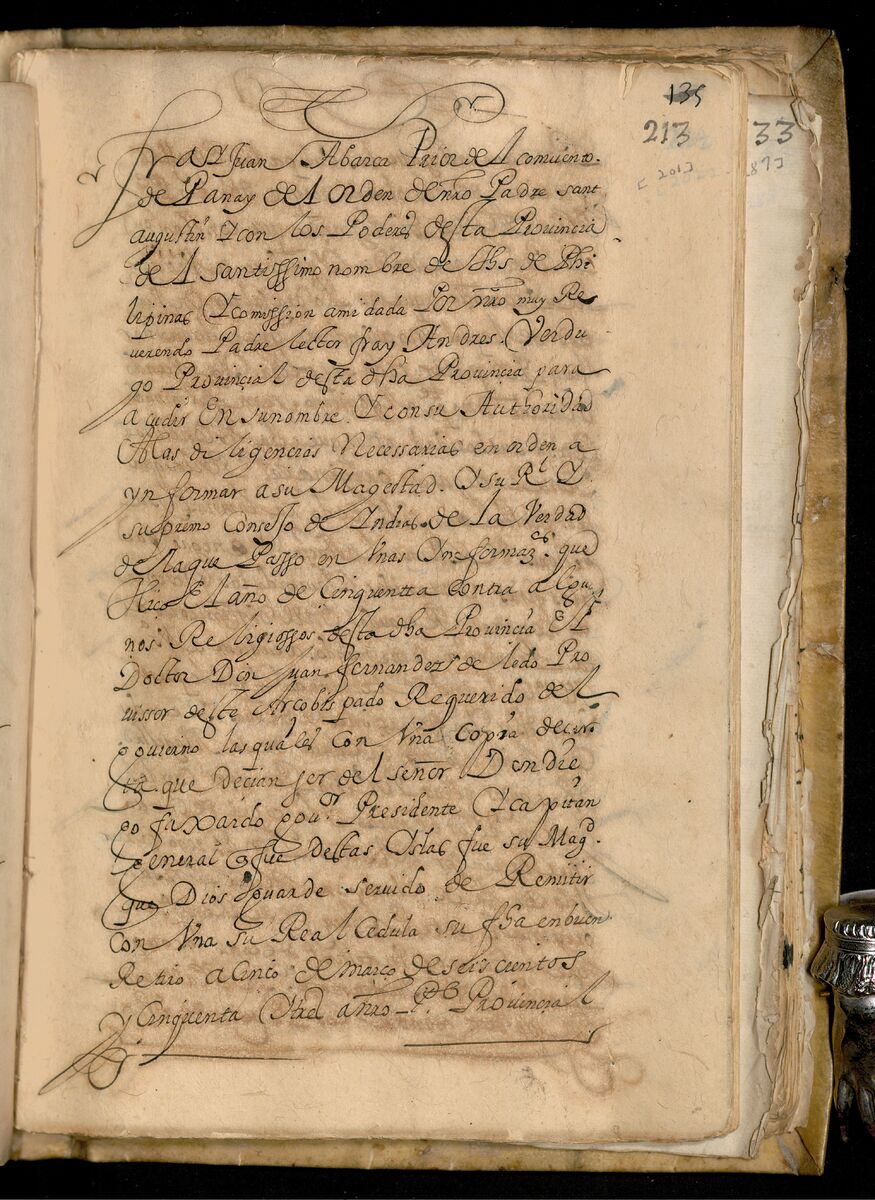 135
213 33
[ 201] 187]
fray Juan Abarca Prior del comviento
de Panay del orden de nro Padre sant
augustin Y con los Poderes desta Provincia
del santissimo nombre de Jhs de Phi
lipinas Y comission ami dada Por nro muy Re
uerendo Padre lector fray Andres Verdu
go Provincial desta dha Provincia para
acudir En su nombre Y con su Authoridad
Alas diligencias Necessarias en orden a
ynformar a su Magestad. Y su Rl Y
supremo Consejo de Yndias de la Verdad
de la que Passo en Vnas Ynformazes que
Hico El año de Cinquentta contra algu
nos Religiossos desta dha Provincia El
Doctor Don Juan fernandez de ledo Pro
uissor deste Arcobispado Requerido del
govierno las quales con Vna copia de car
ta que decian ser del señor Don die
go faxardo gour Presidente Y capitan
general que fue destas Yslas fue su Magd.
que Dios guarde servido de Remitir
con Vna su Real Cedula su fha en buen
Retiro a Cinco de março de seiscientos
y Cinquenta Ytres a nro Pe Provincial